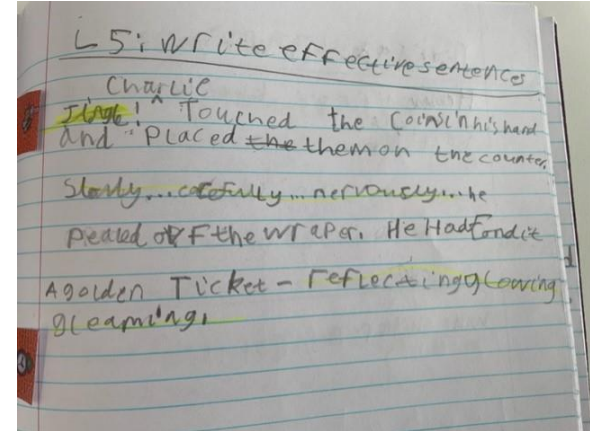 L5: write effective sentences
Charlie
Jingle! ^ Touched the coins in his hand
and placed the them on the counter.
Slowly... carefully... nervously... he
pealed off the wraper. He Had fondit
A golden Ticket - reflecting glowing
gleaming,